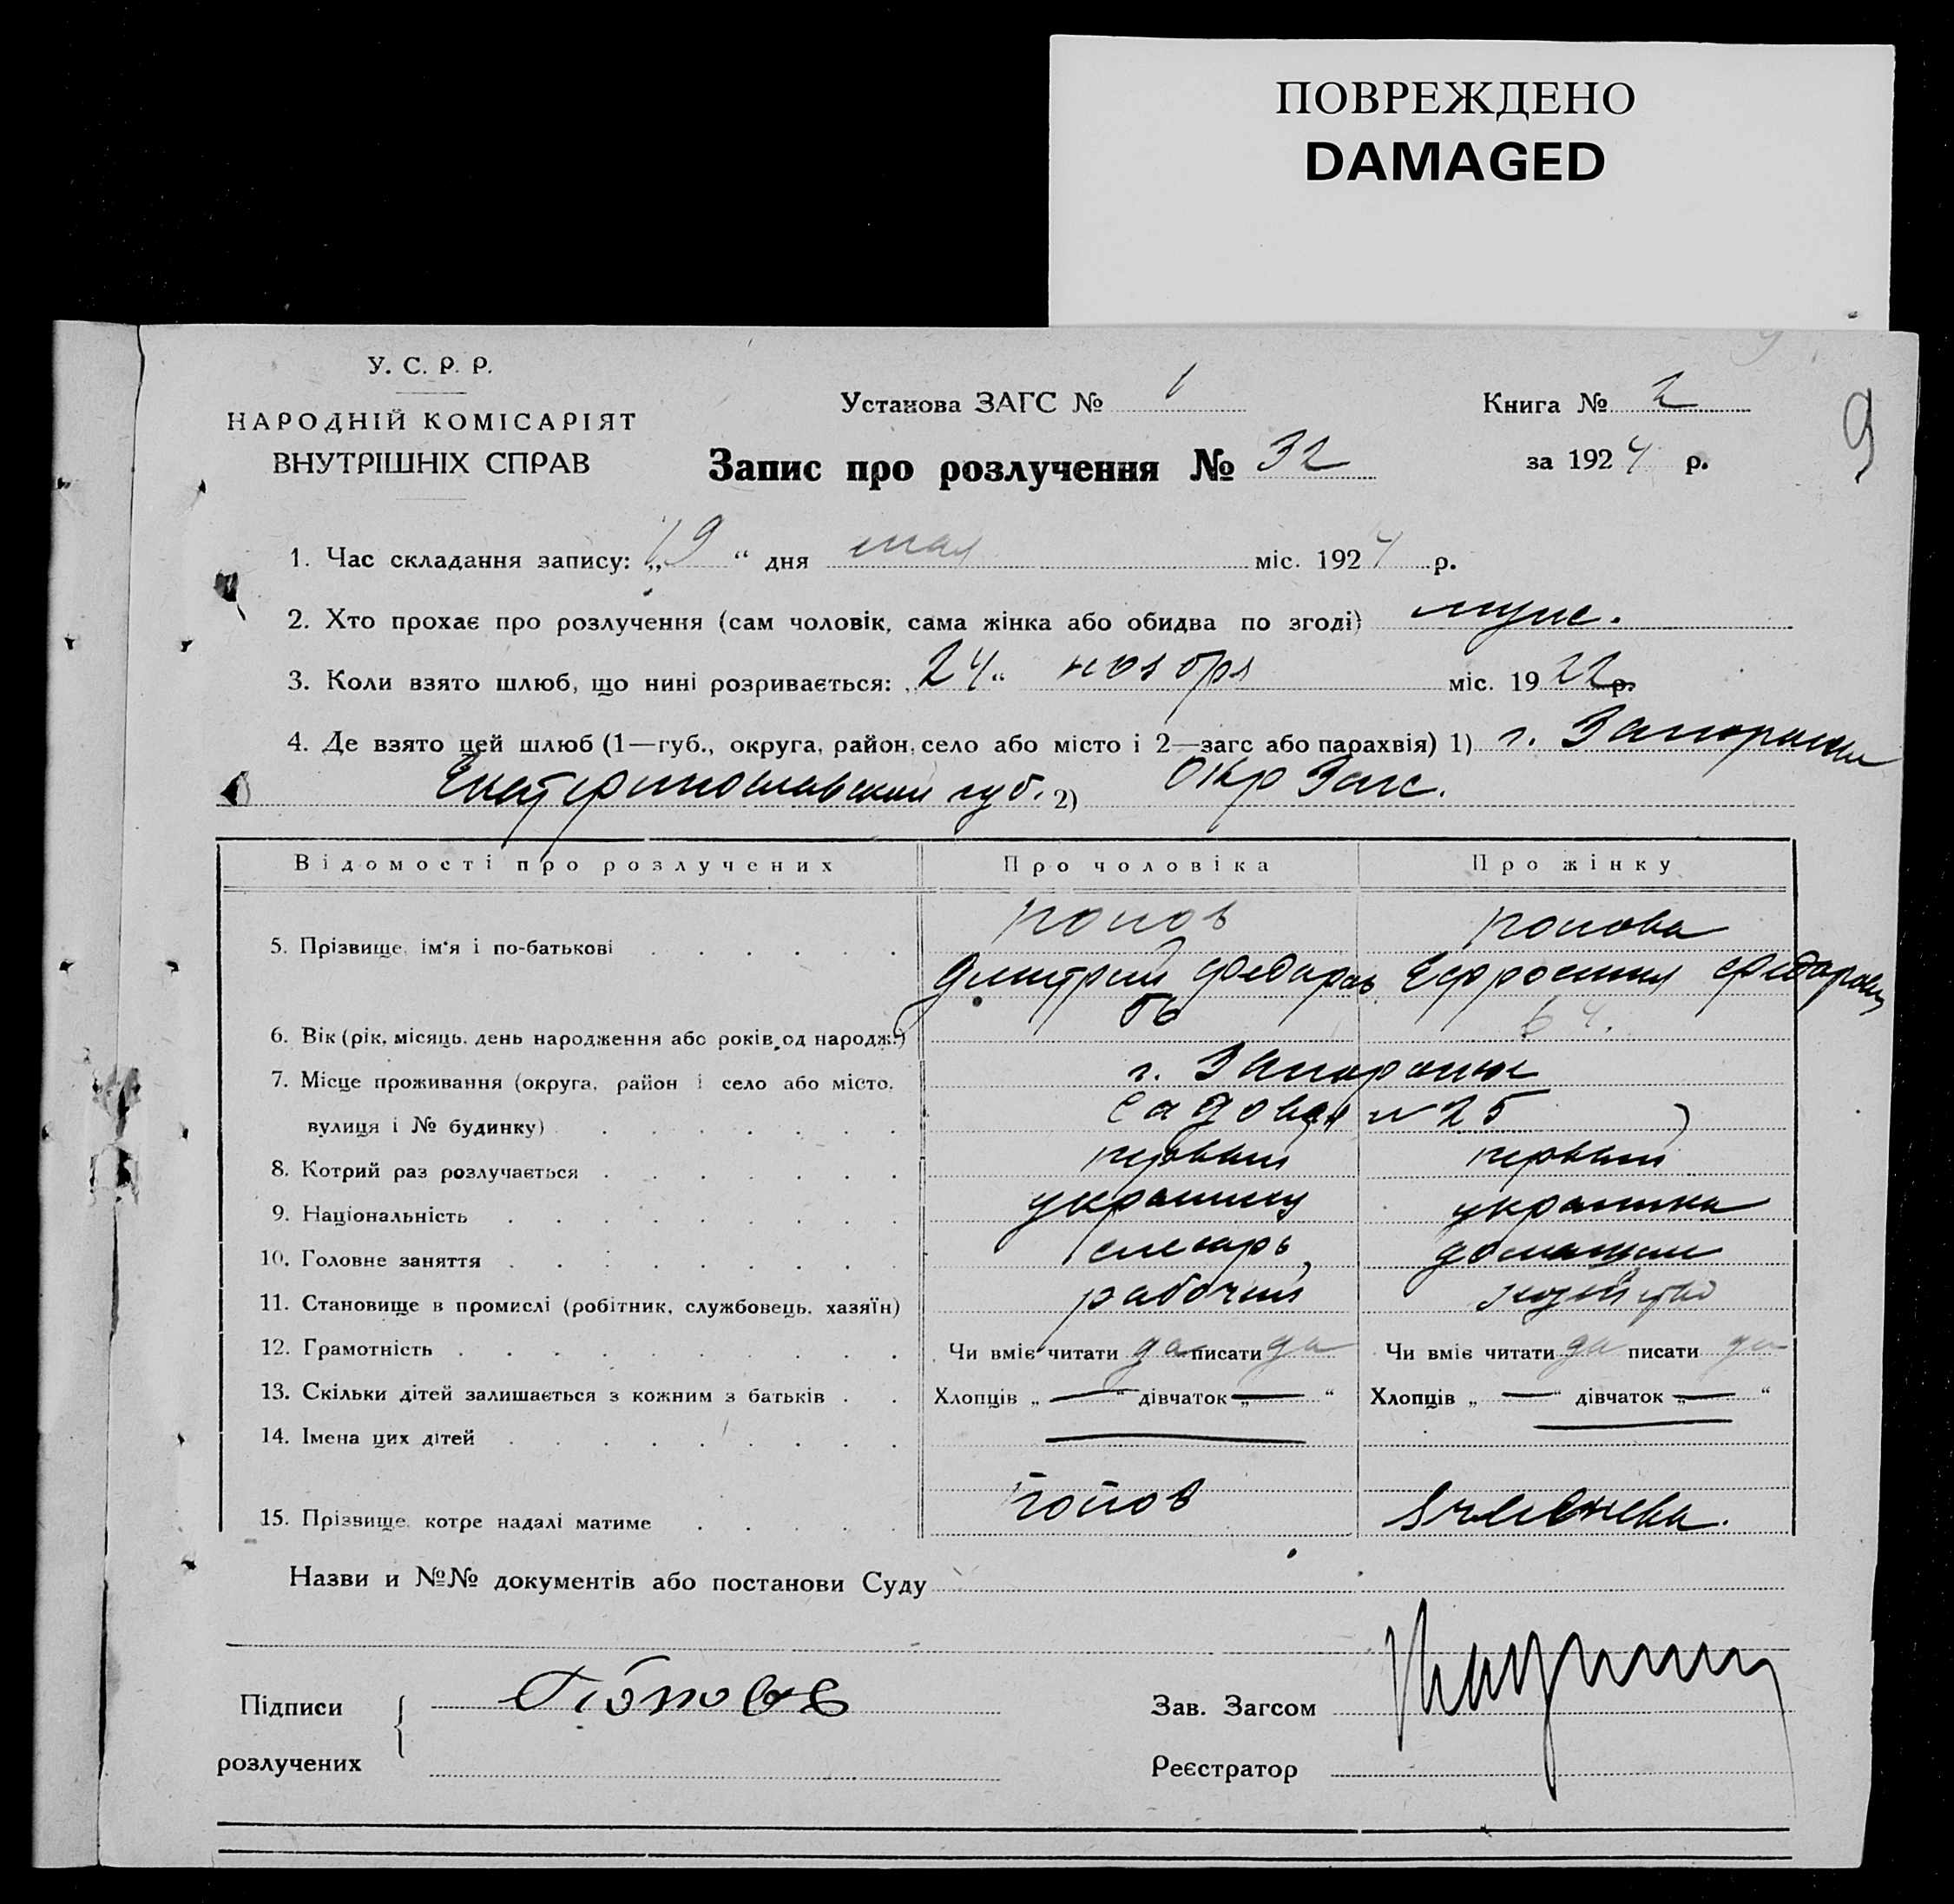 ПОВРЕЖДЕНО
DAMAGED
У. С. Р. Р.
НАРОДНІЙ КОМІСАРІЯТ
ВНУТРІШНІХ СПРАВ
Установа ЗАГС № 1
Книга № 2
Запис про розлучення № 32
за 1924 р.
9
1. Час складання запису: „19“ дня мая міс. 1924 р.
2. Хто прохає про розлучення (сам чоловік, сама жінка або обидва по згоді) муж.
3. Коли взято шлюб, що нині розривається: „24“ ноября міс. 1922 р.
4. Де взято цей шлюб (1—губ., округа, район, село або місто і 2—загс або парахвія) 1) г. Запорожье
Екатеринославской губ. 2) Окр Загс.
Відомості про розлучених Про чоловіка Про жінку
Попов Попова
5. Прізвище, ім'я і по-батькові
Димитрий Федоров Ефросиния Федоровн
6. Вік (рік, місяць, день народження або років од народж.) 56
7. Місце проживання (округа, район і село або місто, г. Запорожье
вулиця і № будинку) Садовая № 25
8. Котрий раз розлучається первый первый
9. Національність украинец украинка
10. Головне заняття слесарь, домашнее
11. Становище в промислі (робітник, службовець, хазяїн) рабочий хозяйство
12. Грамотність Чи вміє читати да писати да Чи вміє читати да писати да
13. Скільки дітей залишається з кожним з батьків Хлопців „ — “ дівчаток „ — “ Хлопців „ — “ дівчаток „ — “
14. Імена цих дітей — —
15. Прізвище, котре надалі матиме Попов
Назви и №№ документів або постанови Суду
Підписи розлучених Попов
Зав. Загсом
Реєстратор